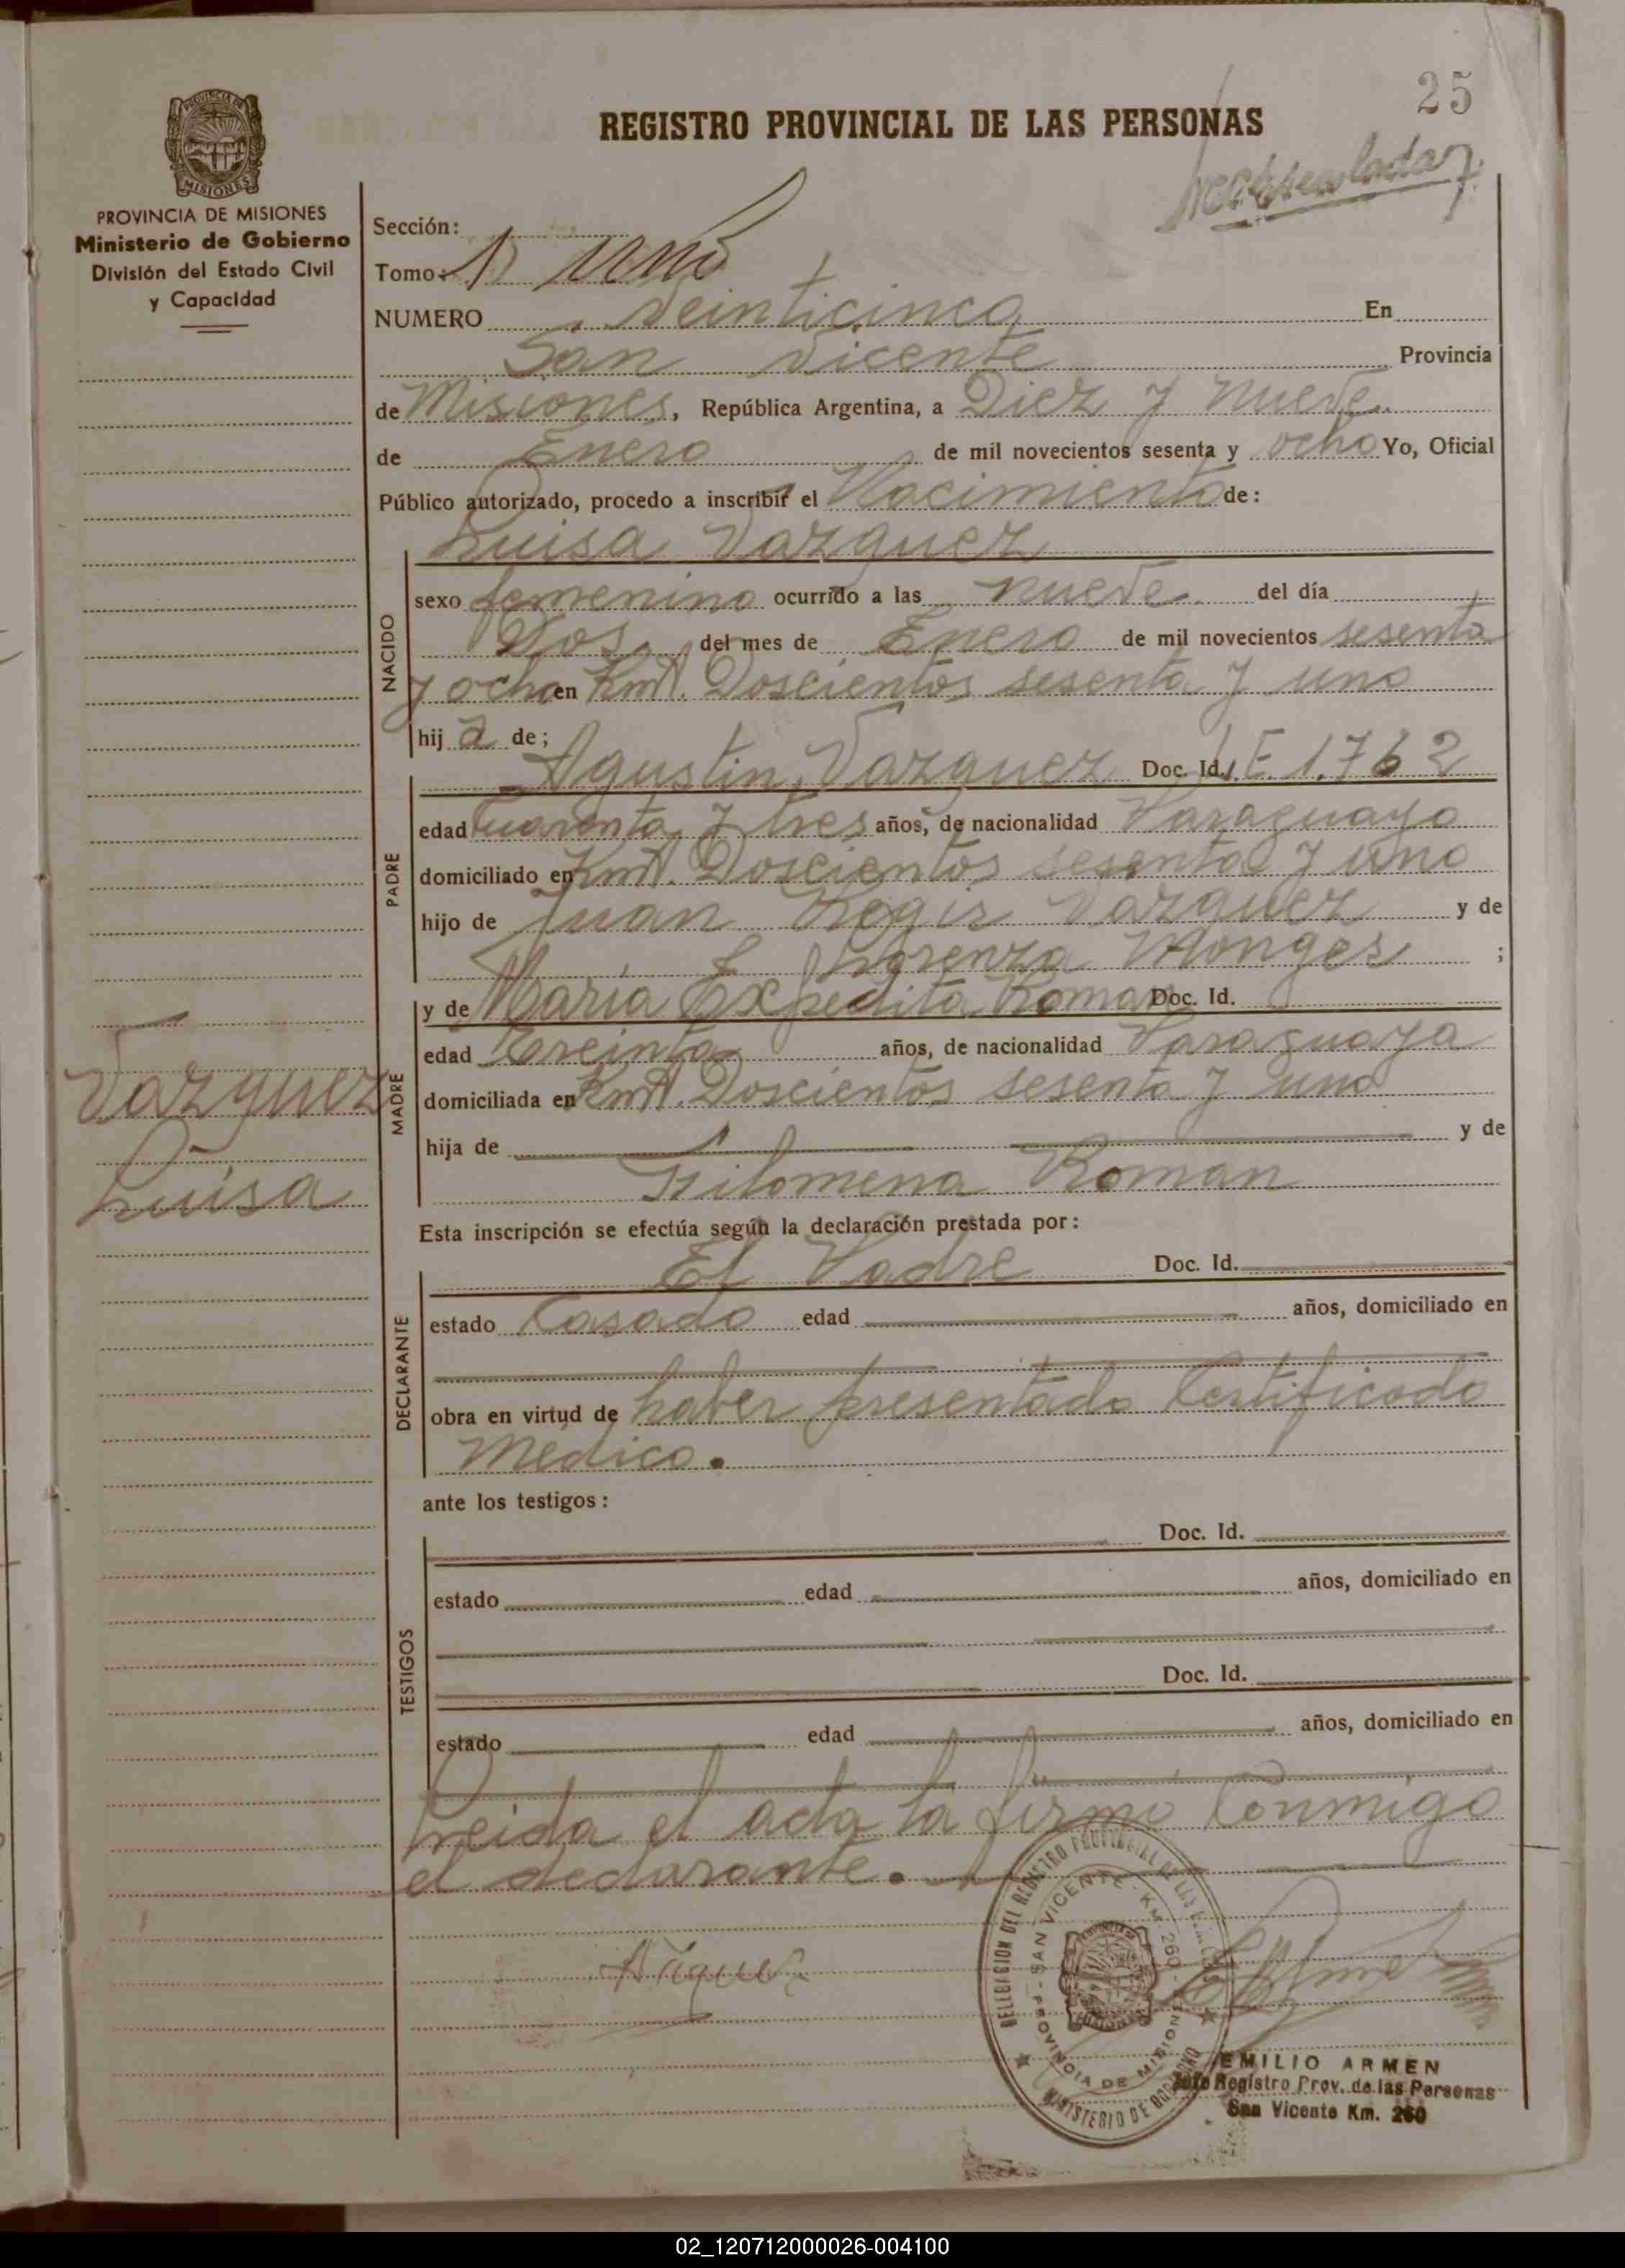 25
REGISTRO PROVINCIAL DE LAS PERSONAS
PROVINCIA DE
MISIONES
PROVINCIA DE MISIONES
Ministerio de Gobierno
División del Estado Civil
y Capacidad
Sección:
Tomo: 1) uno
NUMERO Veinticinco En
San Vicente Provincia
de Misiones, República Argentina, a Diez y nueve
de Enero de mil novecientos sesenta y ocho Yo, Oficial
Público autorizado, procedo a inscribir el Nacimiento de:
Luisa Vazquez
NACIDO
sexo femenino ocurrido a las nueve del día
Dos del mes de Enero de mil novecientos sesenta
y ocho en Kmt. Doscientos sesenta y uno
hij a de;
Agustin Vazquez Doc. Id. 1.762
PADRE
edad Cuarenta y tres años, de nacionalidad Paraguayo
domiciliado en Kmt. Doscientos sesenta y uno
hijo de Juan Regis Vazquez y de
Lorenza Monges ;
MADRE
y de Maria Expedita Roman Doc. Id.
edad Treinta años, de nacionalidad Paraguaya
domiciliada en Kmt. Doscientos sesenta y uno
hija de y de
Filomena Roman
Vazquez
Luisa
Esta inscripción se efectúa según la declaración prestada por:
DECLARANTE
El Padre Doc. Id.
estado Casado edad años, domiciliado en
obra en virtud de haber presentado Certificado
Medico.
ante los testigos:
TESTIGOS
Doc. Id.
estado edad años, domiciliado en
Doc. Id.
estado edad años, domiciliado en
Leida el acta la firmó Conmigo
el declarante.
DELEGACION DEL REGISTRO PROVINCIAL DE LAS
SAN VICENTE - KM 260 - PROVINCIA DE MISIONES
MINISTERIO DE GOBIERNO
EMILIO ARMEN
Jefe Registro Prov. de las Personas
San Vicente Km. 260
02_120712000026-004100